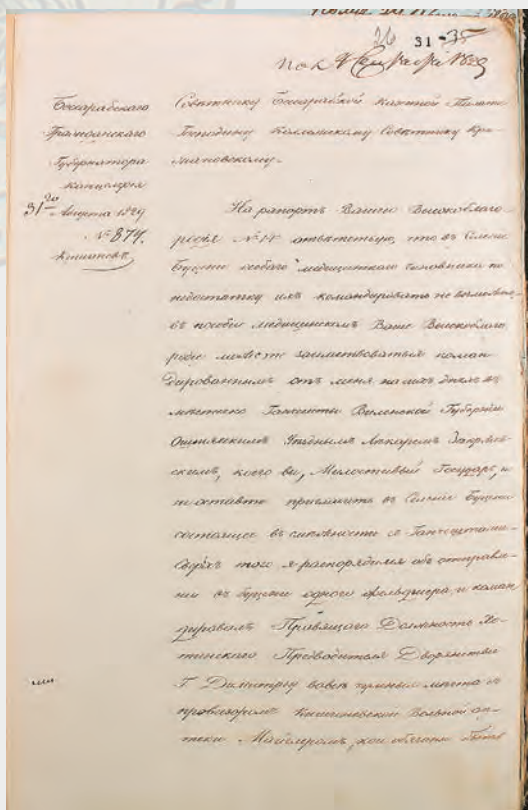 26 31 - 35
Бессарабскаго
Гражданскаго
Губернатора
Канцелярія
31го Августа 1829
№ 874.
Кишиневъ
Совѣтнику Бессарабской Казенной Палаты
Господину Коллежскому Совѣтнику Кры-
жановскому.
На рапортъ Вашего Высокоблаго-
родія № отвѣтствую, что въ Селеніе
Буцени особаго медицинскаго чиновника по
недостатку ихъ командировать не возможно,
въ пособіи медицинскомъ Ваше Высокоблаго
родіе можете заимствоваться коман
дированнымъ отъ меня на сихъ дняхъ въ
мѣстечко Ганчешты Виленской Губерніи
Ошмянскимъ Уѣзднымъ Лекаремъ
скимъ, коего вы, Милостивый Государь, и
не оставьте пригласить въ Селеніе Буцени
состоящее въ смежности съ Ганчештами.
Сверхъ того я распорядился объ отправле-
ніи въ Буцени одного фельдшера, и коман
дировалъ Правящаго Должность Хо-
тинскаго Предводителя Дворянства
Г. Димитріу во всѣ чумныя мѣста съ
провизоромъ Кишиневской Вольной ап-
теки Майлеромъ, кои обязаны быть